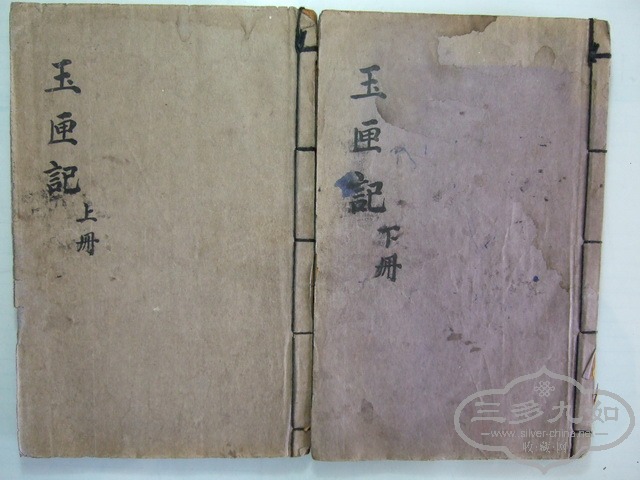 玉匣記
上冊
玉匣記
下冊
三多九如
www.silver-china.net
收·藏·网